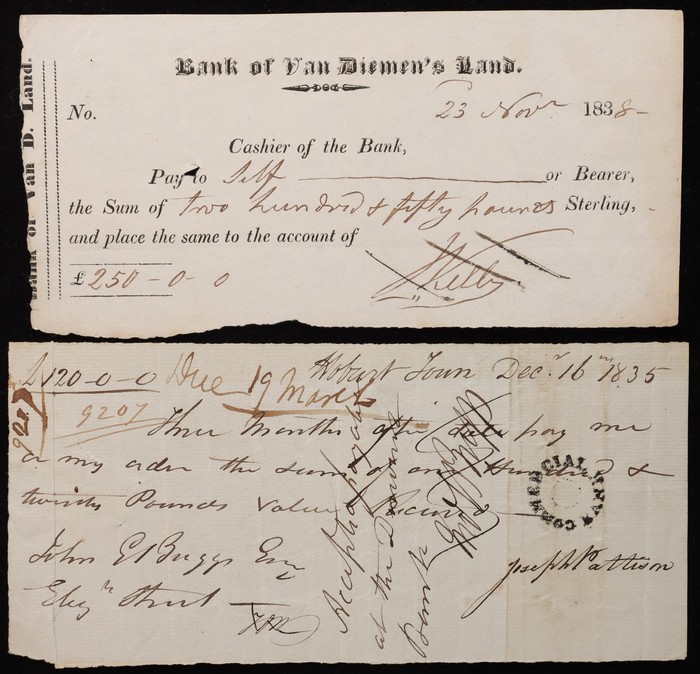 Bank of Van D. Land.
Bank of Van Diemen's Land.
No. 23 Novr 1838-
Cashier of the Bank,
Pay to Self or Bearer,
the Sum of two hundred & fifty pounds Sterling,
and place the same to the account of
£250-0-0
£120-0-0 Due 19 March Hobart Town Decr 16th 1835
9207
9207
Three Months after date pay me
or my order the sum of one Hundred &
twenty Pounds Value Received
John E Buggs Esq
Elizth Street
Joseph Pattison
Accepted payable
at the Derwent
Bank
COMMERCIAL BANK